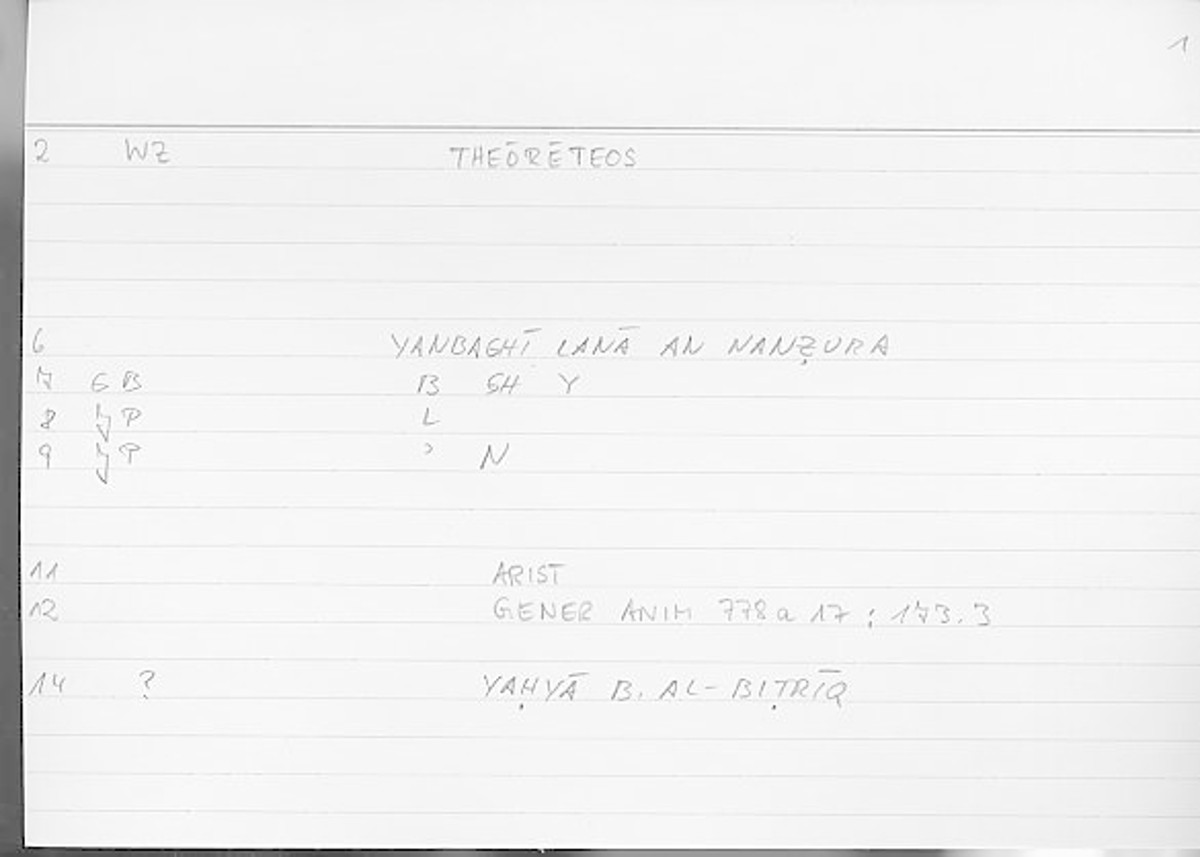 1
2 WZ THEŌRĒTEOS
6 YANBAGHĪ LANĀ AN NANẒURA
7 G B B GH Y
8 P L
9 P ʾ N
11 ARIST
12 GENER ANIM 778a 17 ; 173.3
14 ? YAḤYĀ B. AL-BIṬRĪQ